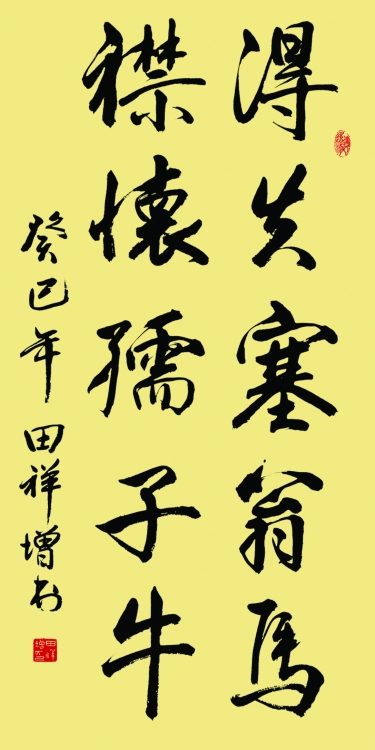 得失塞翁馬
襟懷孺子牛
癸巳年 田祥增书